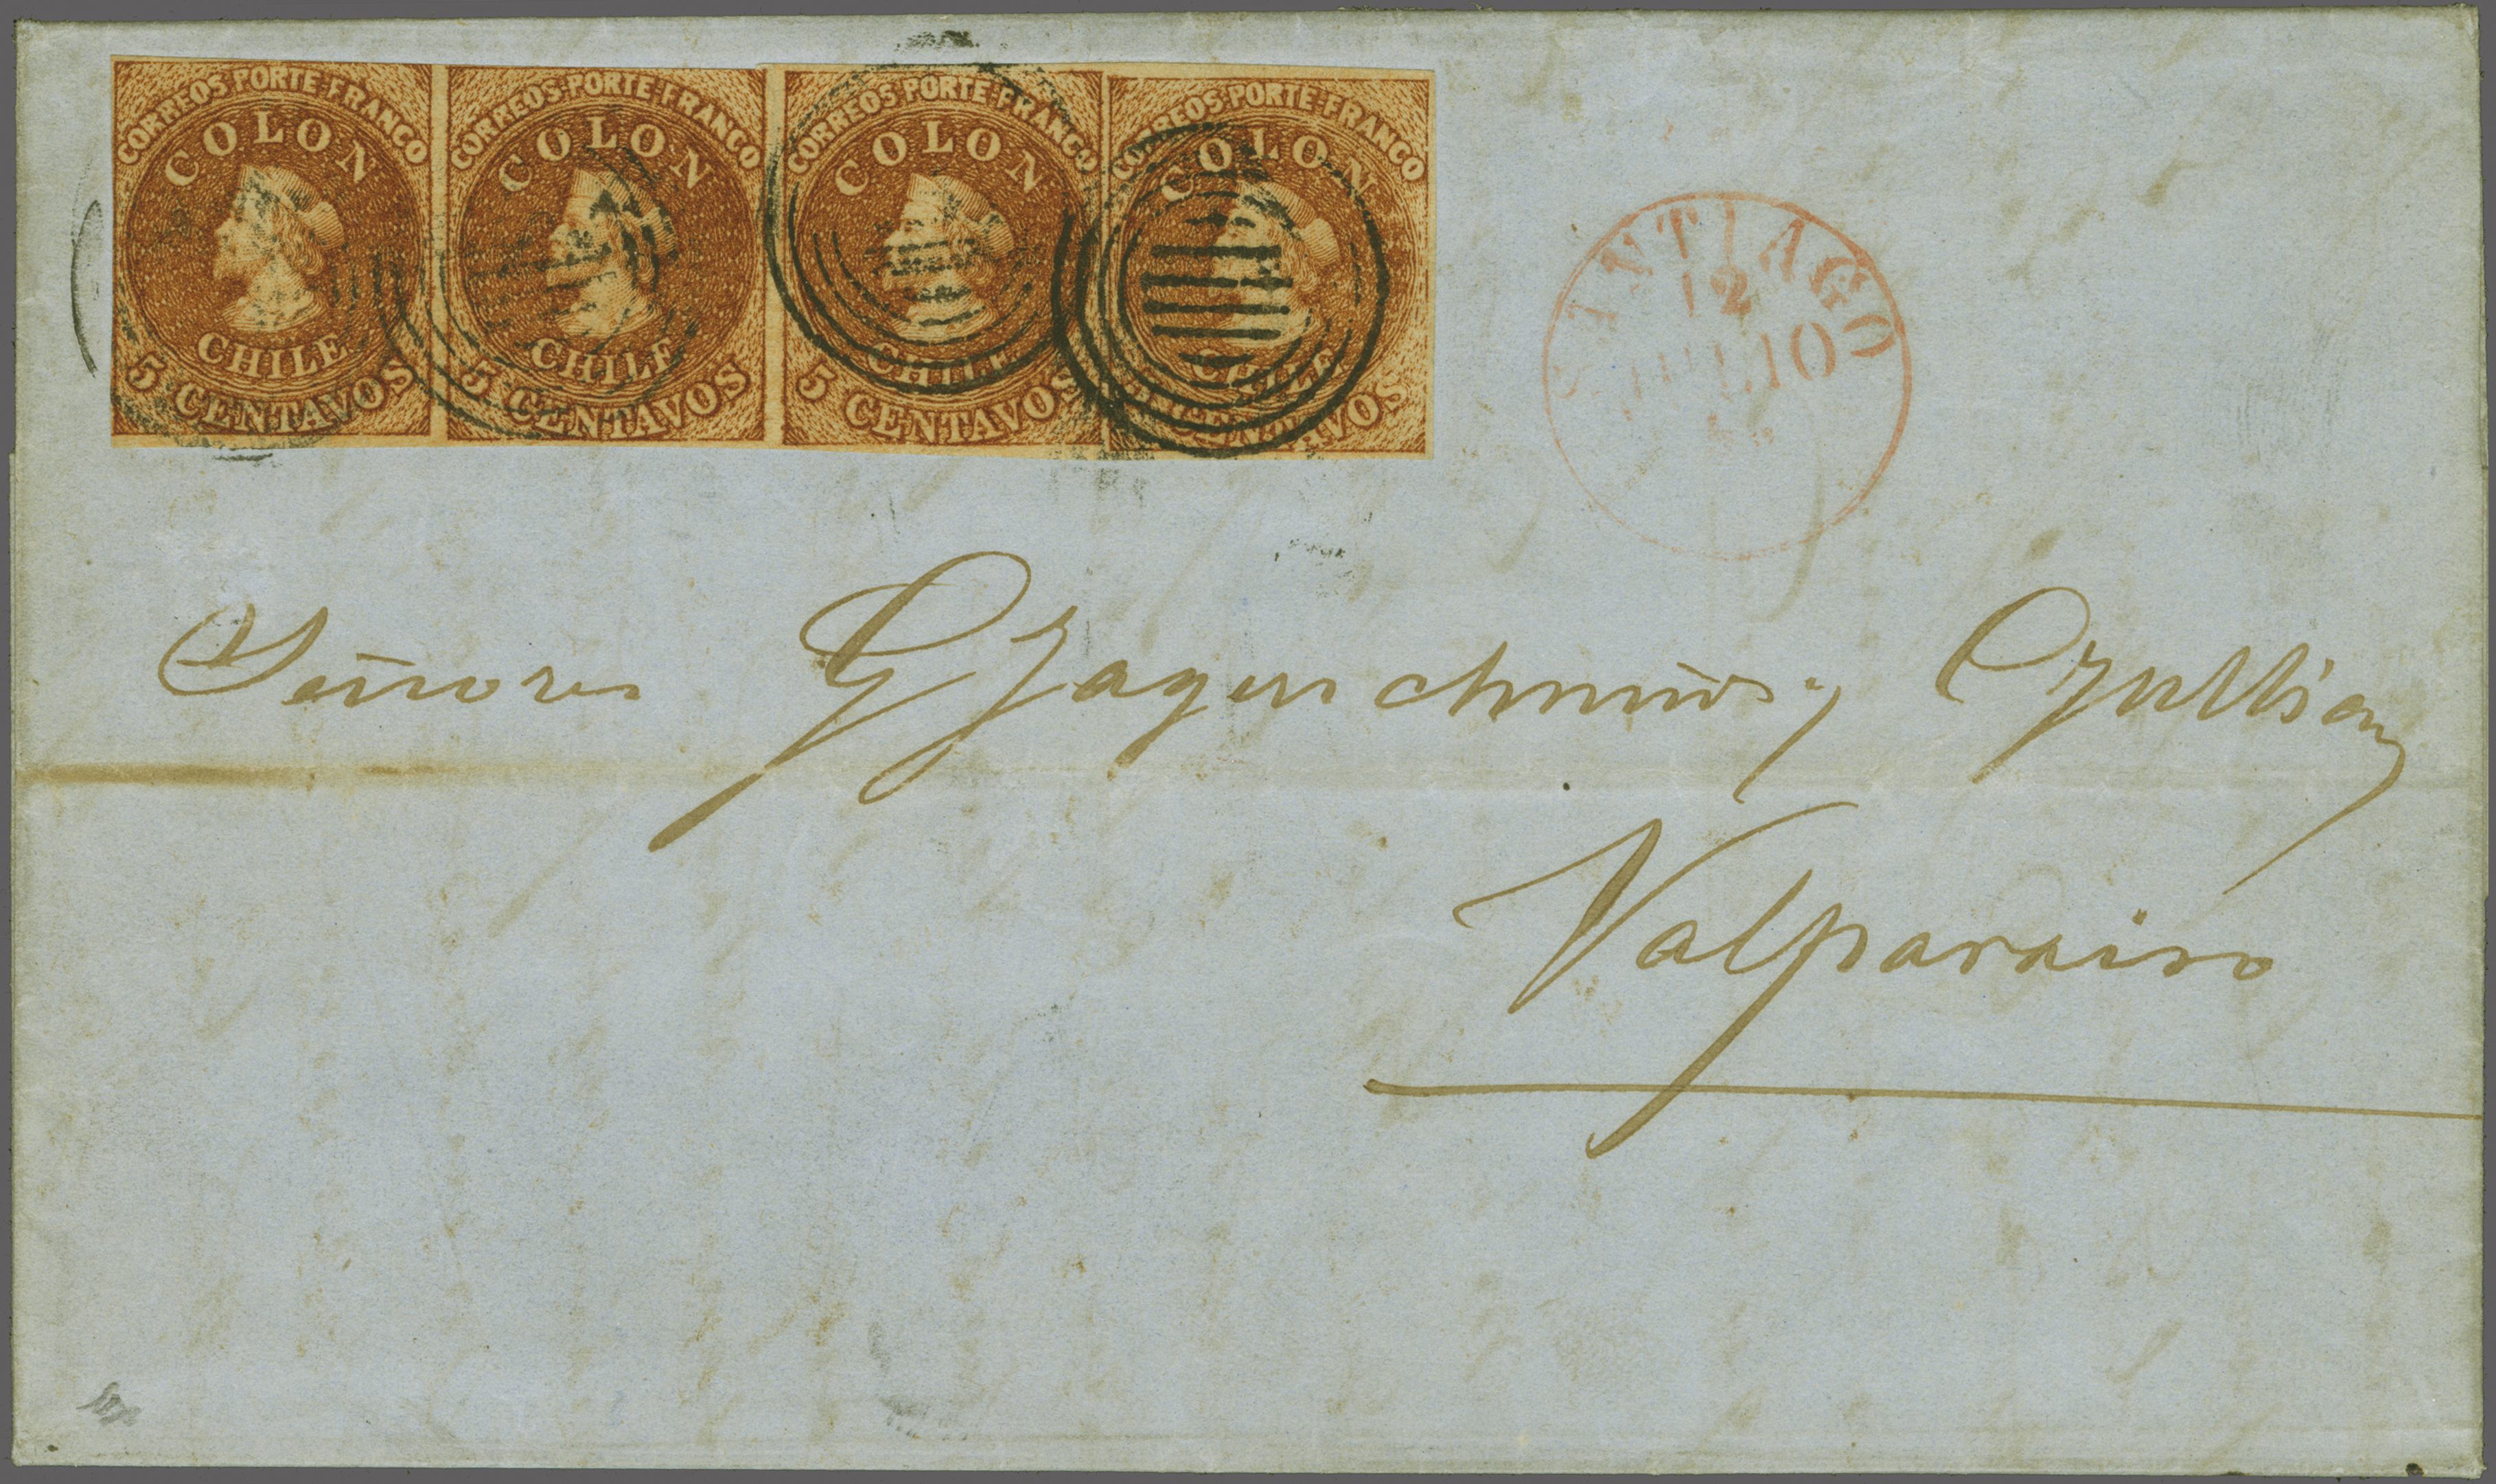 CORREOS PORTE FRANCO
COLON
CHILE
5 CENTAVOS
CORREOS PORTE FRANCO
COLON
CHILE
5 CENTAVOS
CORREOS PORTE FRANCO
COLON
CHILE
5 CENTAVOS
CORREOS PORTE FRANCO
COLON
CHILE
CENTAVOS
SANTIAGO
12
JULIO
Señores y
Valparaiso